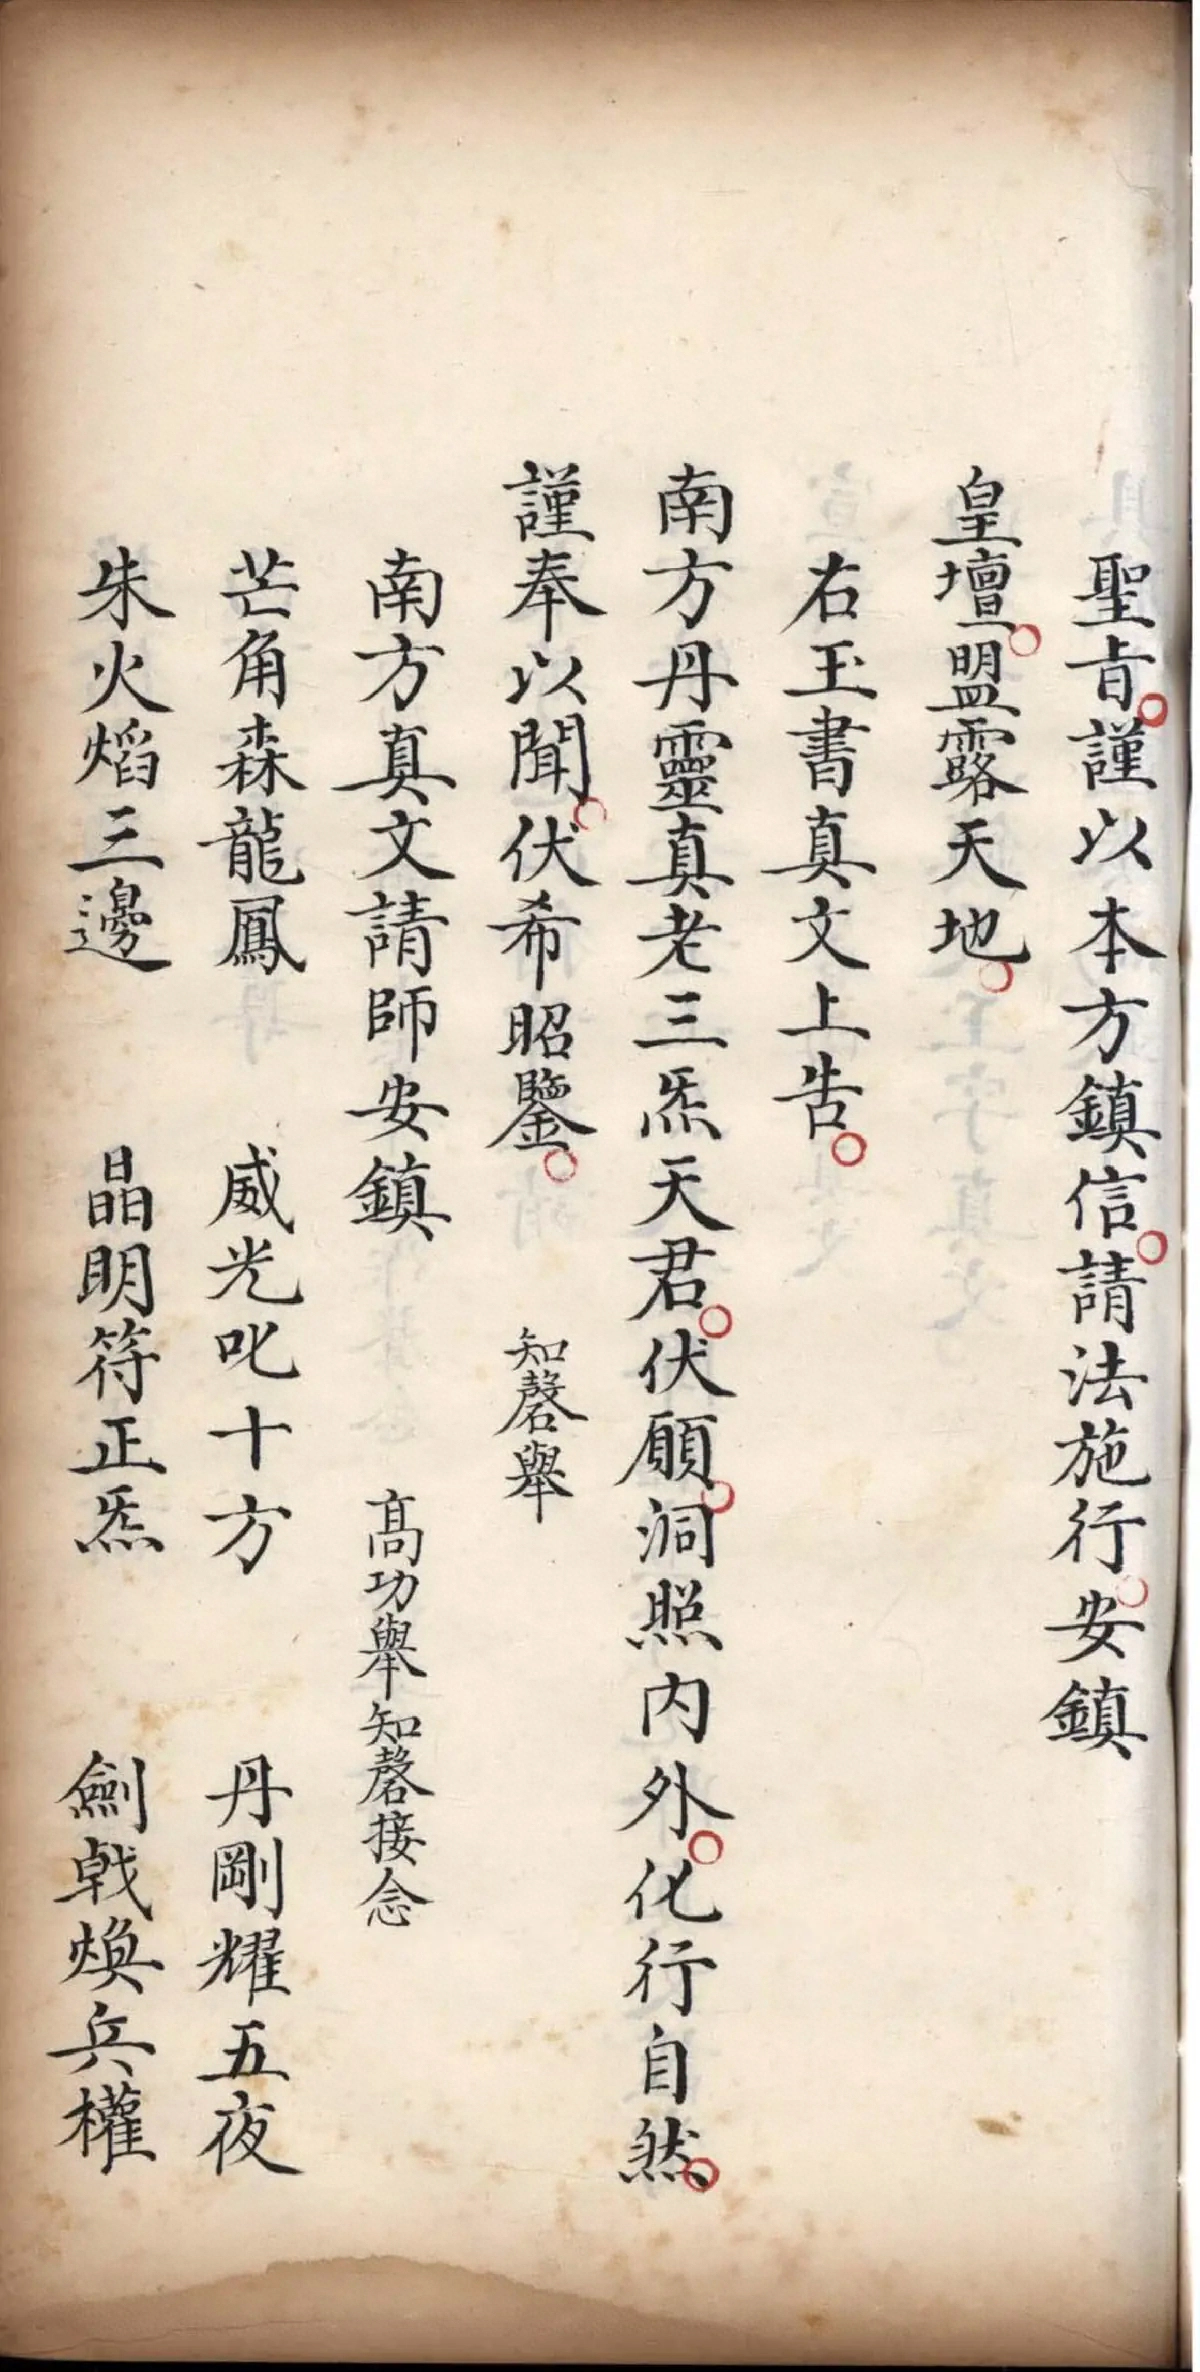 聖旨。謹以本方鎮信。請法施行。安鎮
皇壇。盟露天地。
右玉書真文上告。
南方丹靈真老三炁天君。伏願。洞照內外。化行自然。
謹奉以聞。伏希昭鑒。 知磬舉
南方真文請師安鎮 高功舉知磬接念
芒角森龍鳳 威光叱十方 丹剛耀五夜
朱火焰三邊 晶明符正炁 劍戟煥兵權